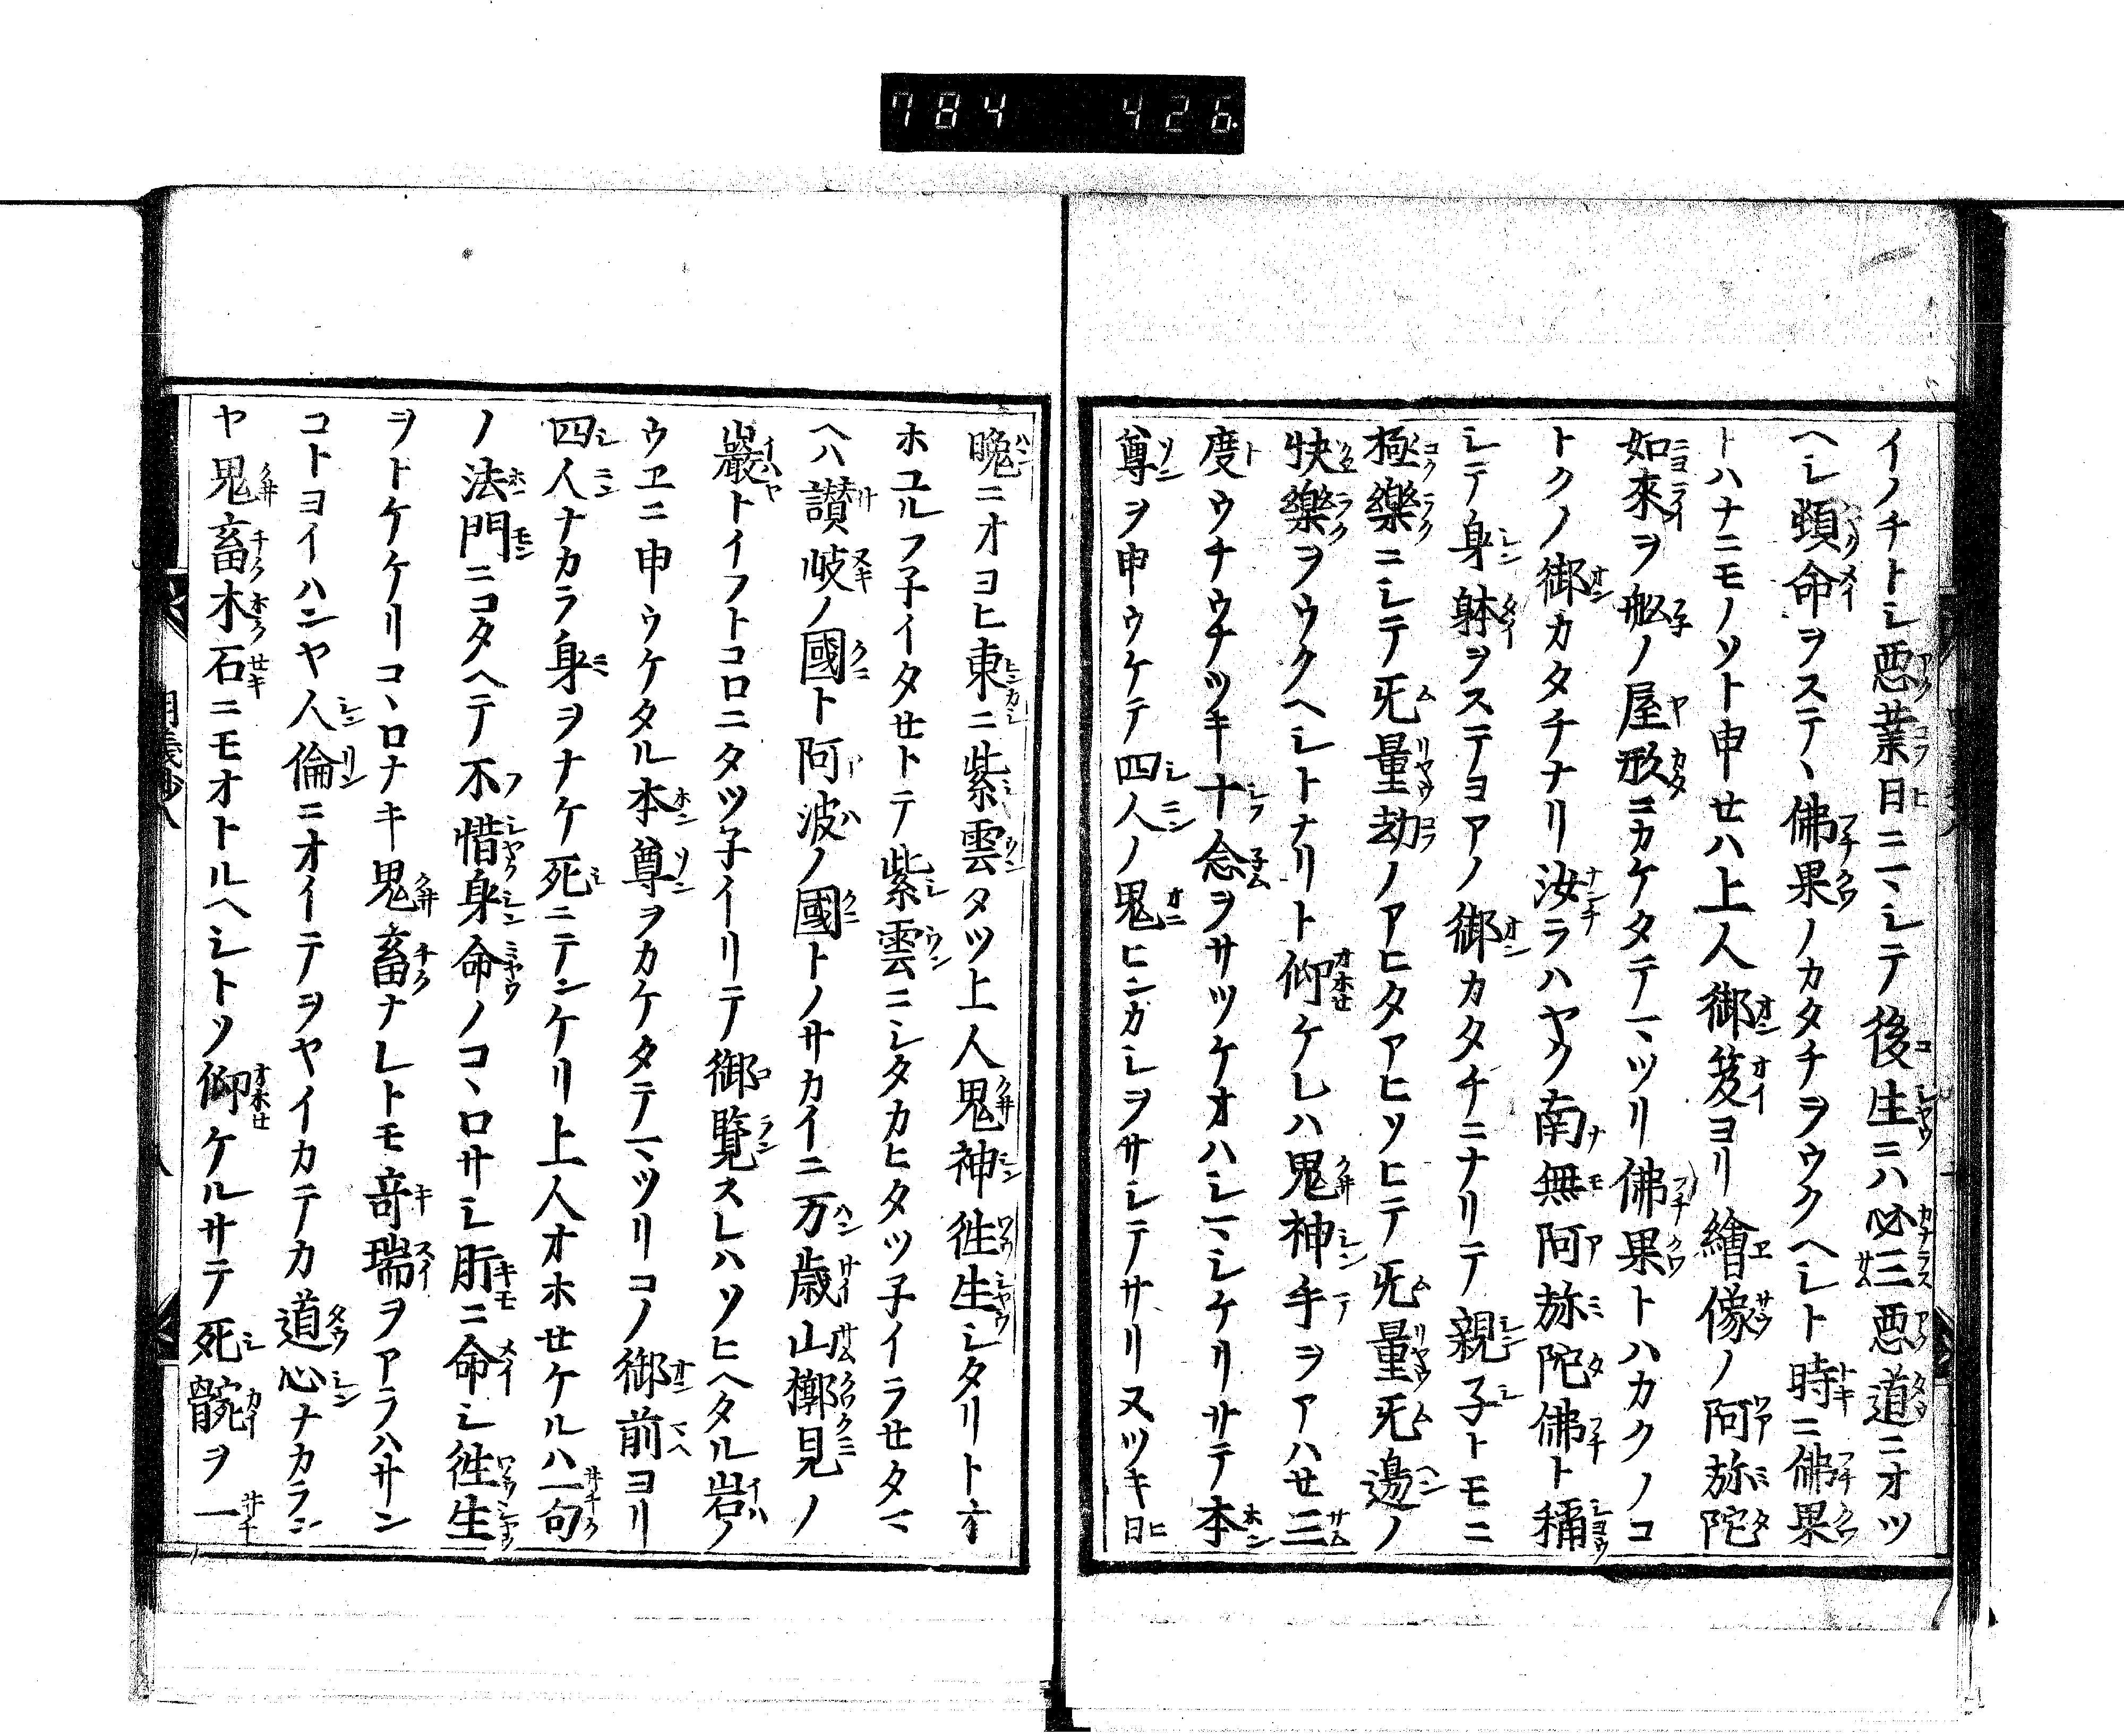 784 426.
イノチトシ悪業日ニヽシテ後生ニハ必三悪道ニオツ
ヘシ頓命ヲステヽ佛果ノカタチヲウクヘシト時ニ佛果
トハナニモノソト申セハ上人御笈ヨリ繪像ノ阿弥陀
如來ヲ舩ノ屋形ニカケタテマツリ佛果トハカクノコ
トクノ御カタチナリ汝ラハヤク南無阿弥陀佛ト稱
シテ身躰ヲステヨアノ御カタチニナリテ親子トモニ
極樂ニシテ旡量劫ノアヒタアヒソヒテ旡量旡邊ノ
快樂ヲウクヘシトナリト仰ケレハ鬼神手ヲアハセ三
度ウチウナツキ十念ヲサツケオハシマシケリサテ本
尊ヲ申ウケテ四人ノ鬼ヒンカシヲサシテサリヌツキ日
晚ニオヨヒ東ニ紫雲タツ上人鬼神徃生シタリトオ
ホユルフ子イタセトテ紫雲ニシタカヒタツ子イラセタマ
ヘハ讃岐ノ國ト阿波ノ國トノサカイニ万歳山槨見ノ
巖トイフトコロニタツ子イリテ御覧スレハソヒヘタル岩ノ
ウヱニ申ウケタル本尊ヲカケタテマツリコノ御前ヨリ
四人ナカラ身ヲナケ死ニテンケリ上人オホセケルハ一句
ノ法門ニコタヘテ不惜身命ノコヽロサシ肝ニ命シ徃生
ヲトケケリコヽロナキ鬼畜ナレトモ竒瑞ヲアラハサン
コトヨイハンヤ人倫ニオイテヲヤイカテカ道心ナカラン
ヤ鬼畜木石ニモオトルヘシトソ仰ケルサテ死骸ヲ一